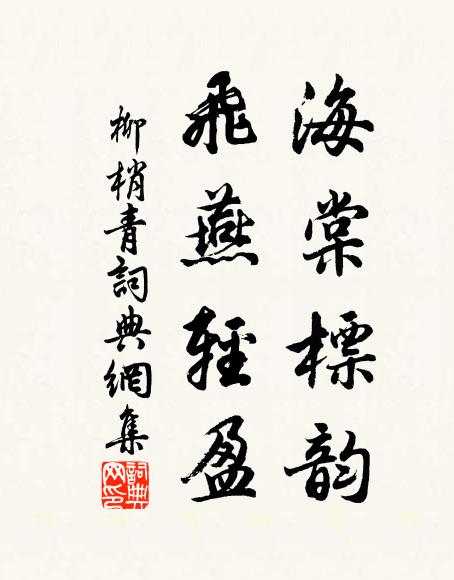 海棠標韵
飛燕輕盈
柳梢青詞典網集
詞典网印